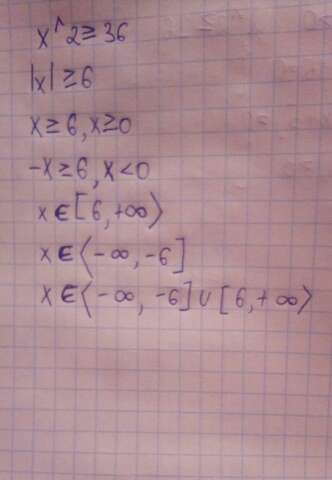 x^2≥36
|x|≥6
x≥6, x≥0
-x≥6, x<0
x∈[6,+∞⟩
x∈⟨-∞,-6]
x∈⟨-∞, -6]∪[6,+∞⟩